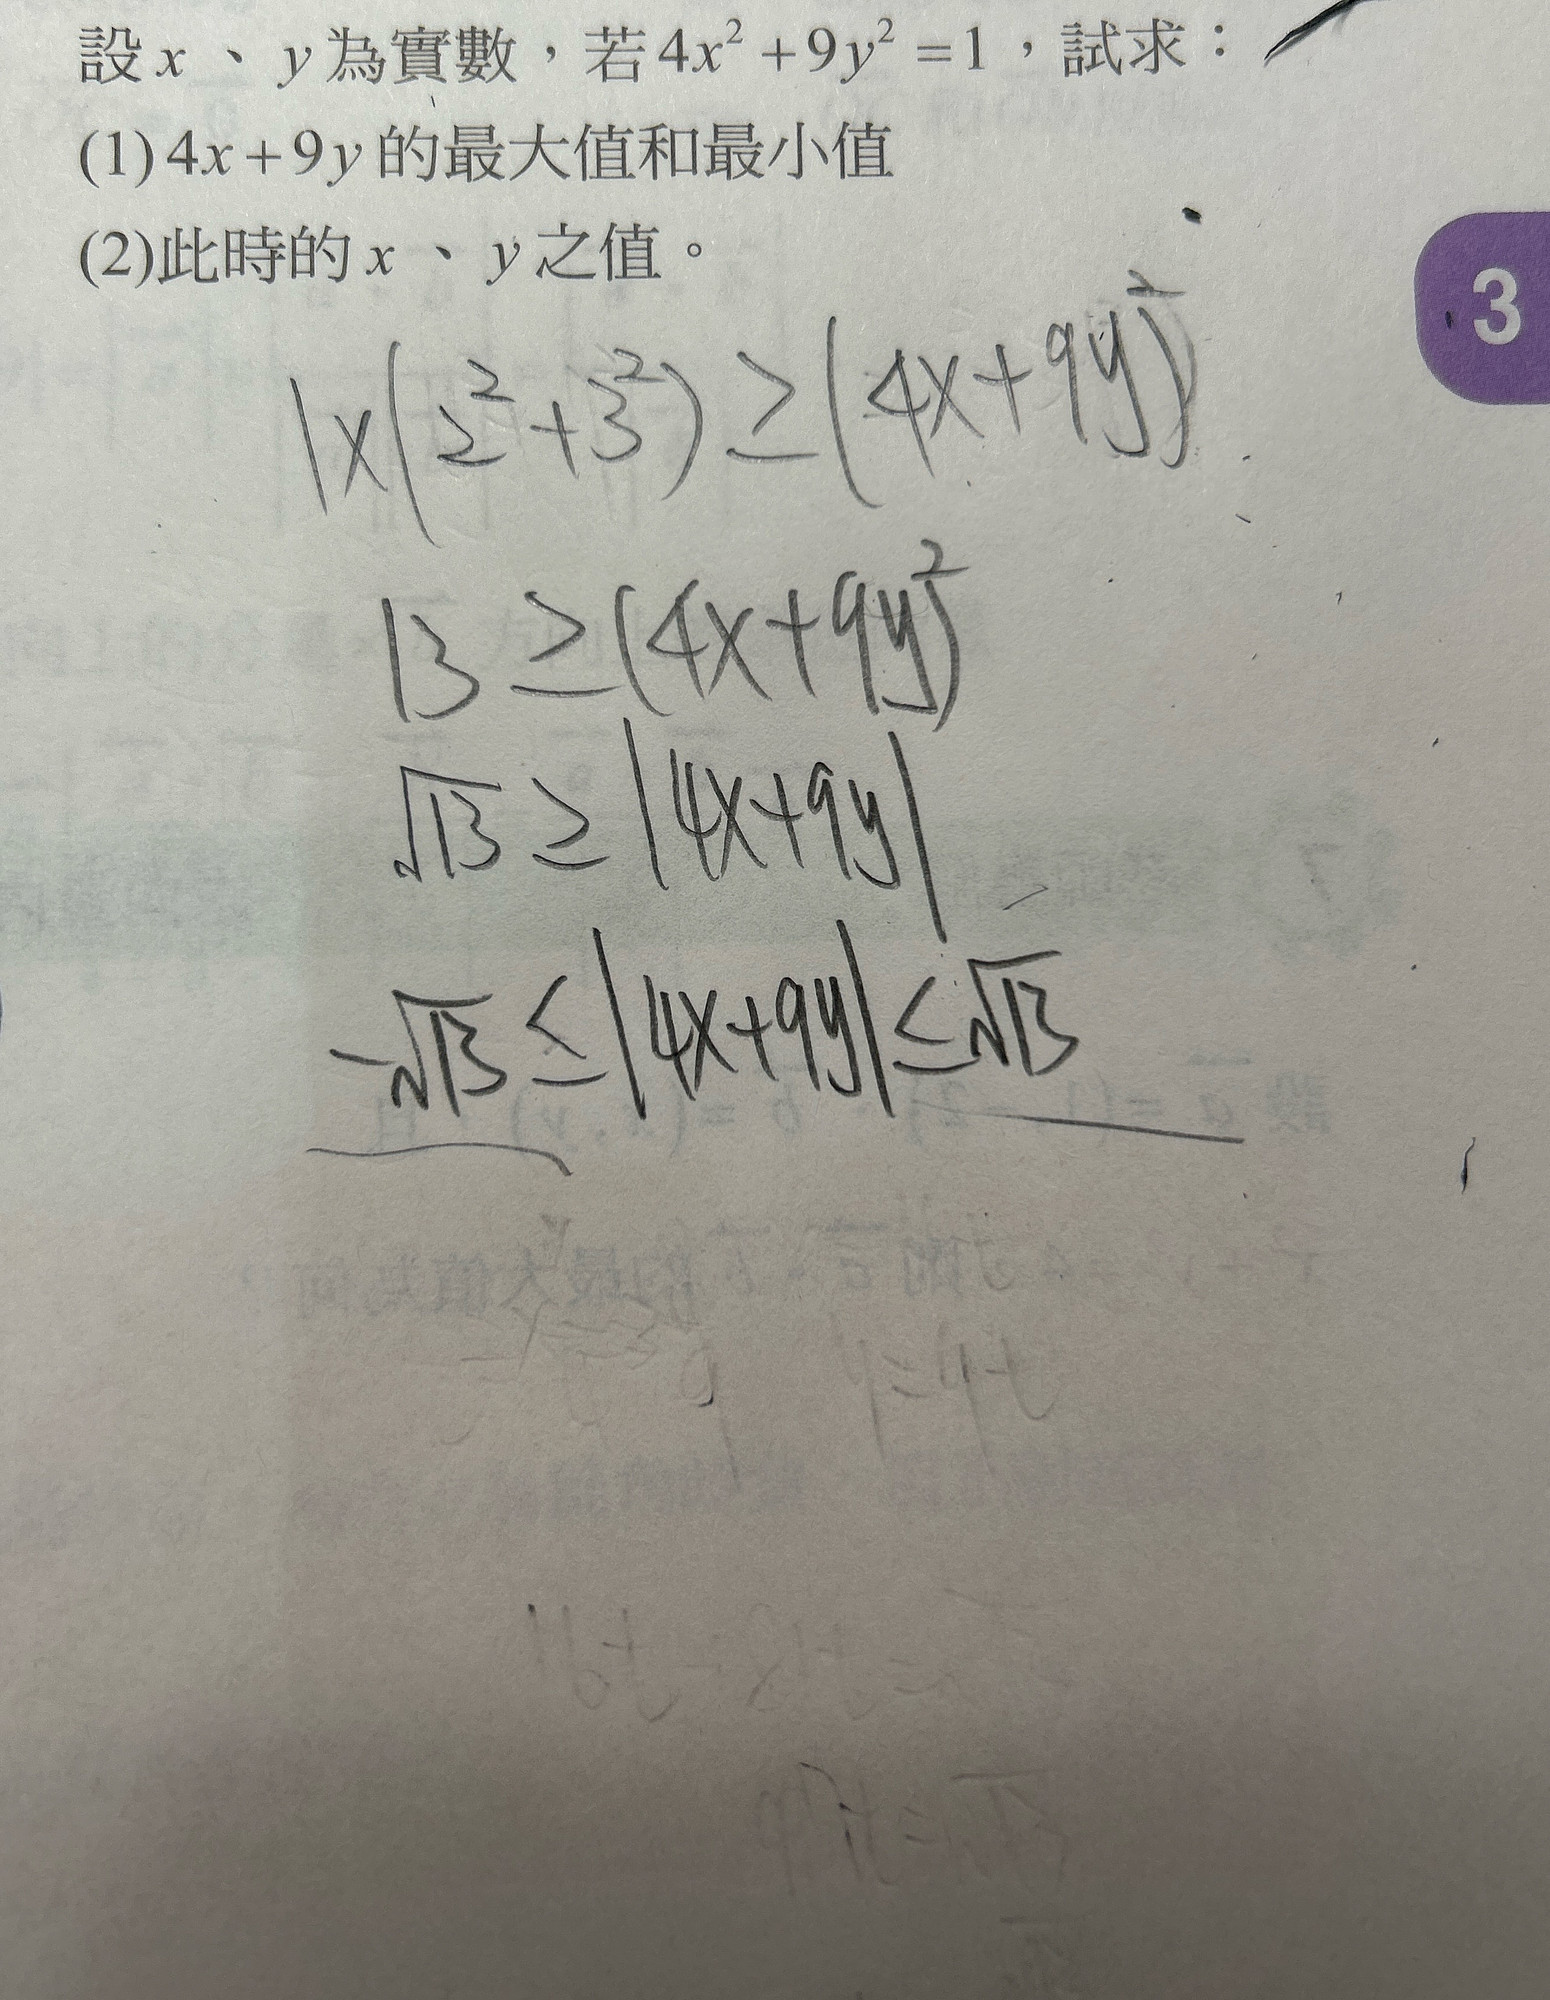 設 x 、 y 為實數，若 4x² + 9y² = 1，試求：
(1) 4x + 9y 的最大值和最小值
(2)此時的 x 、 y 之值。
3
1×(2²+3²) ≥ (4x+9y)²
13 ≥ (4x+9y)²
√13 ≥ |4x+9y|
-√13 ≤ |4x+9y| ≤ √13